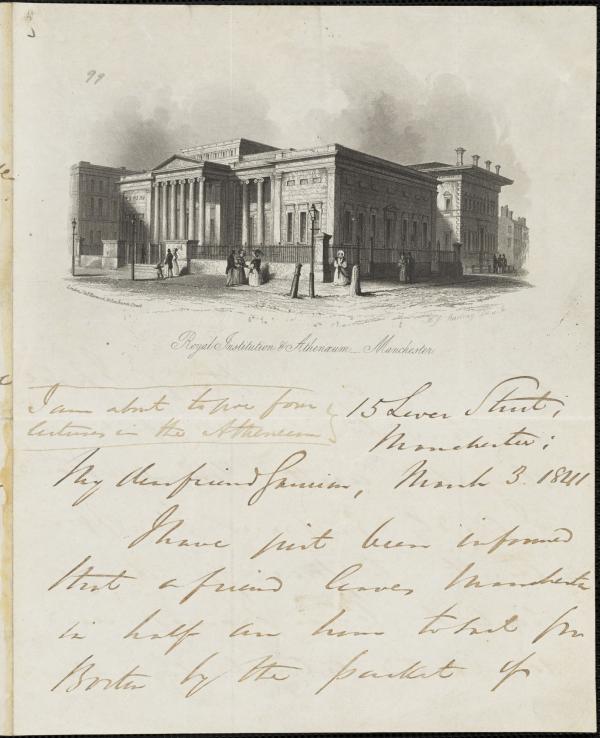 99
Royal Institution & Athenæum_ Manchester
I am about to give four
lectures in the Atheneum
15 Lever Street;
Manchester;
My dear friend Garrison, March 3. 1841
I have just been informed
that a friend leaves Manchester
in half an hour to sail for
Boston by the packet of